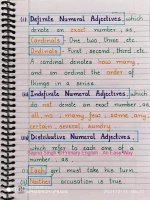 (i) Definite Numeral Adjectives, which
denote an exact number; as,
Cardinals - One, two, three.. etc.
Ordinals - First, second, third etc.
A cardinal denotes how many,
and an ordinal the order of
things in a series.
(ii) Indefinite Numeral Adjectives, which
do not denote an exact number; as,
all, no; many, few; some, any,
certain, several, sundry.
(iii) Distributive Numeral Adjectives,
which refer to each one of a
number; as,
Primary English An Easy Way
Each girl must take his turn.
Neither accusation is true.